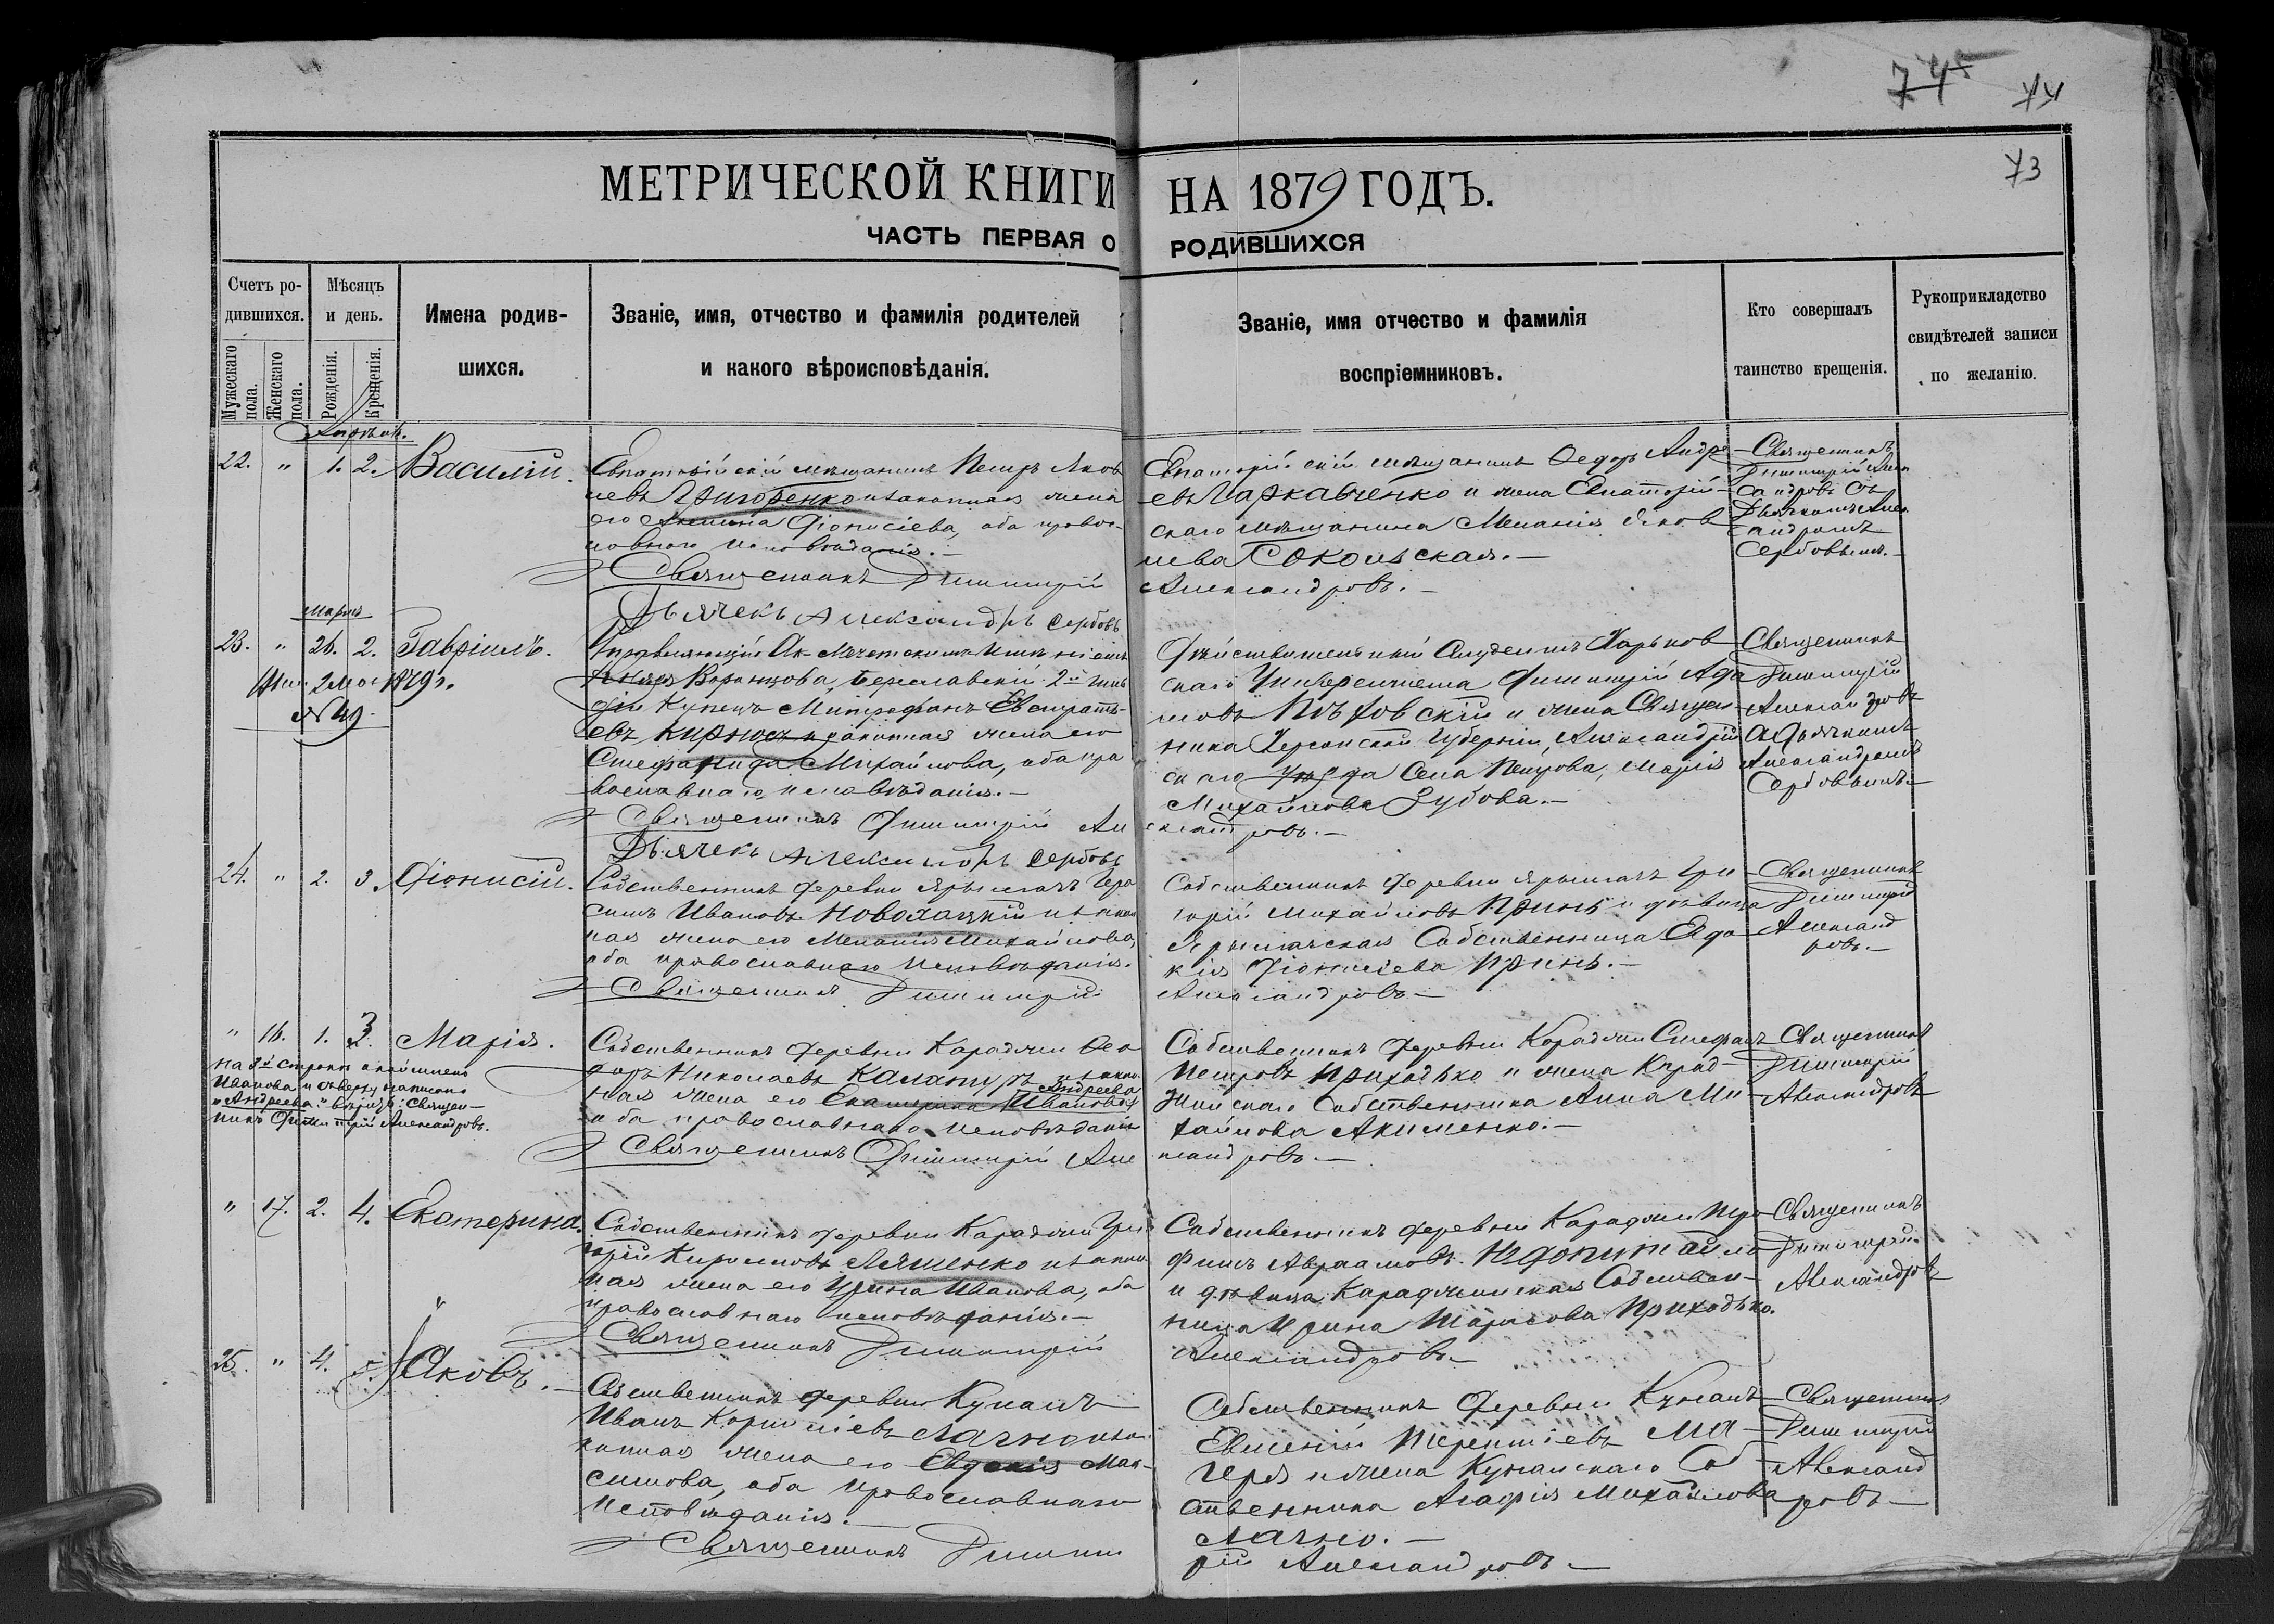 74
73
МЕТРИЧЕСКОЙ КНИГИ НА 1879 ГОДЪ.
ЧАСТЬ ПЕРВАЯ О РОДИВШИХСЯ
Счетъ ро-
дившихся.
Мужескаго пола.
Женскаго пола.
Мѣсяцъ
и день.
Рожденія.
Крещенія.
Имена родив-
шихся.
Званіе, имя, отчество и фамилія родителей
и какого вѣроисповѣданія.
Званіе, имя отчество и фамилія
воспріемниковъ.
Кто совершалъ
таинство крещенія.
Рукоприкладство
свидѣтелей записи
по желанію.
Апрѣль.
22. " 1. 2. Василій.
Евпаторійскій мѣщанинъ Петръ Яков
левъ Григоренко и законная жена
его Діонисіева, оба право-
славнаго исповѣданія.—
Священникъ Димитрій
Дьячекъ Александръ Сербовъ
Евпаторійскій мѣщанинъ Ѳедоръ Андре-
евъ Гаркавченко и жена Евпаторій-
скаго мѣщанина Меланія Яков
лева Сокольская.—
Александровъ.—
Священникъ
Димитрій Алек
сандровъ съ
Дьячкомъ Алек
сандромъ
Сербовымъ.—
Мартъ
23. " 26. 2. Гавріилъ.
1879 г.
№ 49
Управляющій Ак-Мечетскимъ имѣніемъ
Князя Воронцова, Бериславскій 2й гиль
діи купецъ Митрофанъ Евстрать-
евъ Кирносъ и законная жена его
Стефанида Михайлова, оба пра
вославнаго исповѣданія.—
Священникъ Димитрій Але
Дьячекъ Александръ Сербовъ
Дѣйствительный Студентъ Харьков
скаго Университета Димитрій Ада
мовъ Пѣховскій и жена Священ-
ника Херсонской Губерніи, Александрій
скаго Уѣзда Села Петрова, Марія
Михайлова Зубова.—
ксандровъ.—
Священникъ
Димитрій
Александровъ
съ Дьячкомъ
Александромъ
Сербовымъ.—
24. " 2. 3. Діонисій.
Собственникъ деревни Ярылгачъ Гера
симъ Ивановъ Новохацкій и закон
ная жена его Меланія Михайлова,
оба православнаго исповѣданія.
Священникъ Димитрій
Собственникъ деревни Ярылгачъ Гри
горій Михайловъ Принь и дѣвица
Ярылгачская Собственница Евдо
кія Діонисіева Принь.—
Александровъ.—
Священникъ
Димитрій
Александ
ровъ.—
" 16. 1. 3. Марія.
на 3й строкѣ
Иванова и сверху написано
"Андреева" Священ-
никъ Димитрій Александровъ.
Собственникъ деревни Караджи Ѳео
доръ Николаевъ Калатуръ и закон
Андреева
ная жена его Екатерина Иванова
оба православнаго исповѣданія
Священникъ Димитрій Але
Собственникъ деревни Караджи Стефанъ
Петровъ Приходько и жена Карад-
жинскаго Собственника Анна Ми-
хайлова Акименко.—
ксандровъ.—
Священникъ
Димитрій
Александровъ
" 17. 2. 4. Екатерина.
Собственникъ деревни Караджи Гри
горій Кириловъ Ляшенко и закон
ная жена его Ирина Иванова, оба
православнаго исповѣданія.—
Священникъ Димитрій
Собственникъ деревни Караджи Тро
фимъ Авраамовъ
и дѣвица Караджинская Собствен-
ница Ирина Тарасова Приходько.
Александровъ.—
Священникъ
Димитрій
Александровъ
25. " 4. 5. Іаковъ.
Собственникъ деревни Кунанъ
Иванъ Корниліевъ Лагно и за
конная жена его Евдокія Мак-
симова, оба православнаго
исповѣданія.—
Священникъ Димит
Собственникъ деревни Кунанъ
Евменій Терентіевъ Ма-
геря и жена Кунанскаго Соб-
ственника Агафія Михайлова
Лагно.—
рій Александровъ.—
Священникъ
Димитрій
Александ
ровъ.—